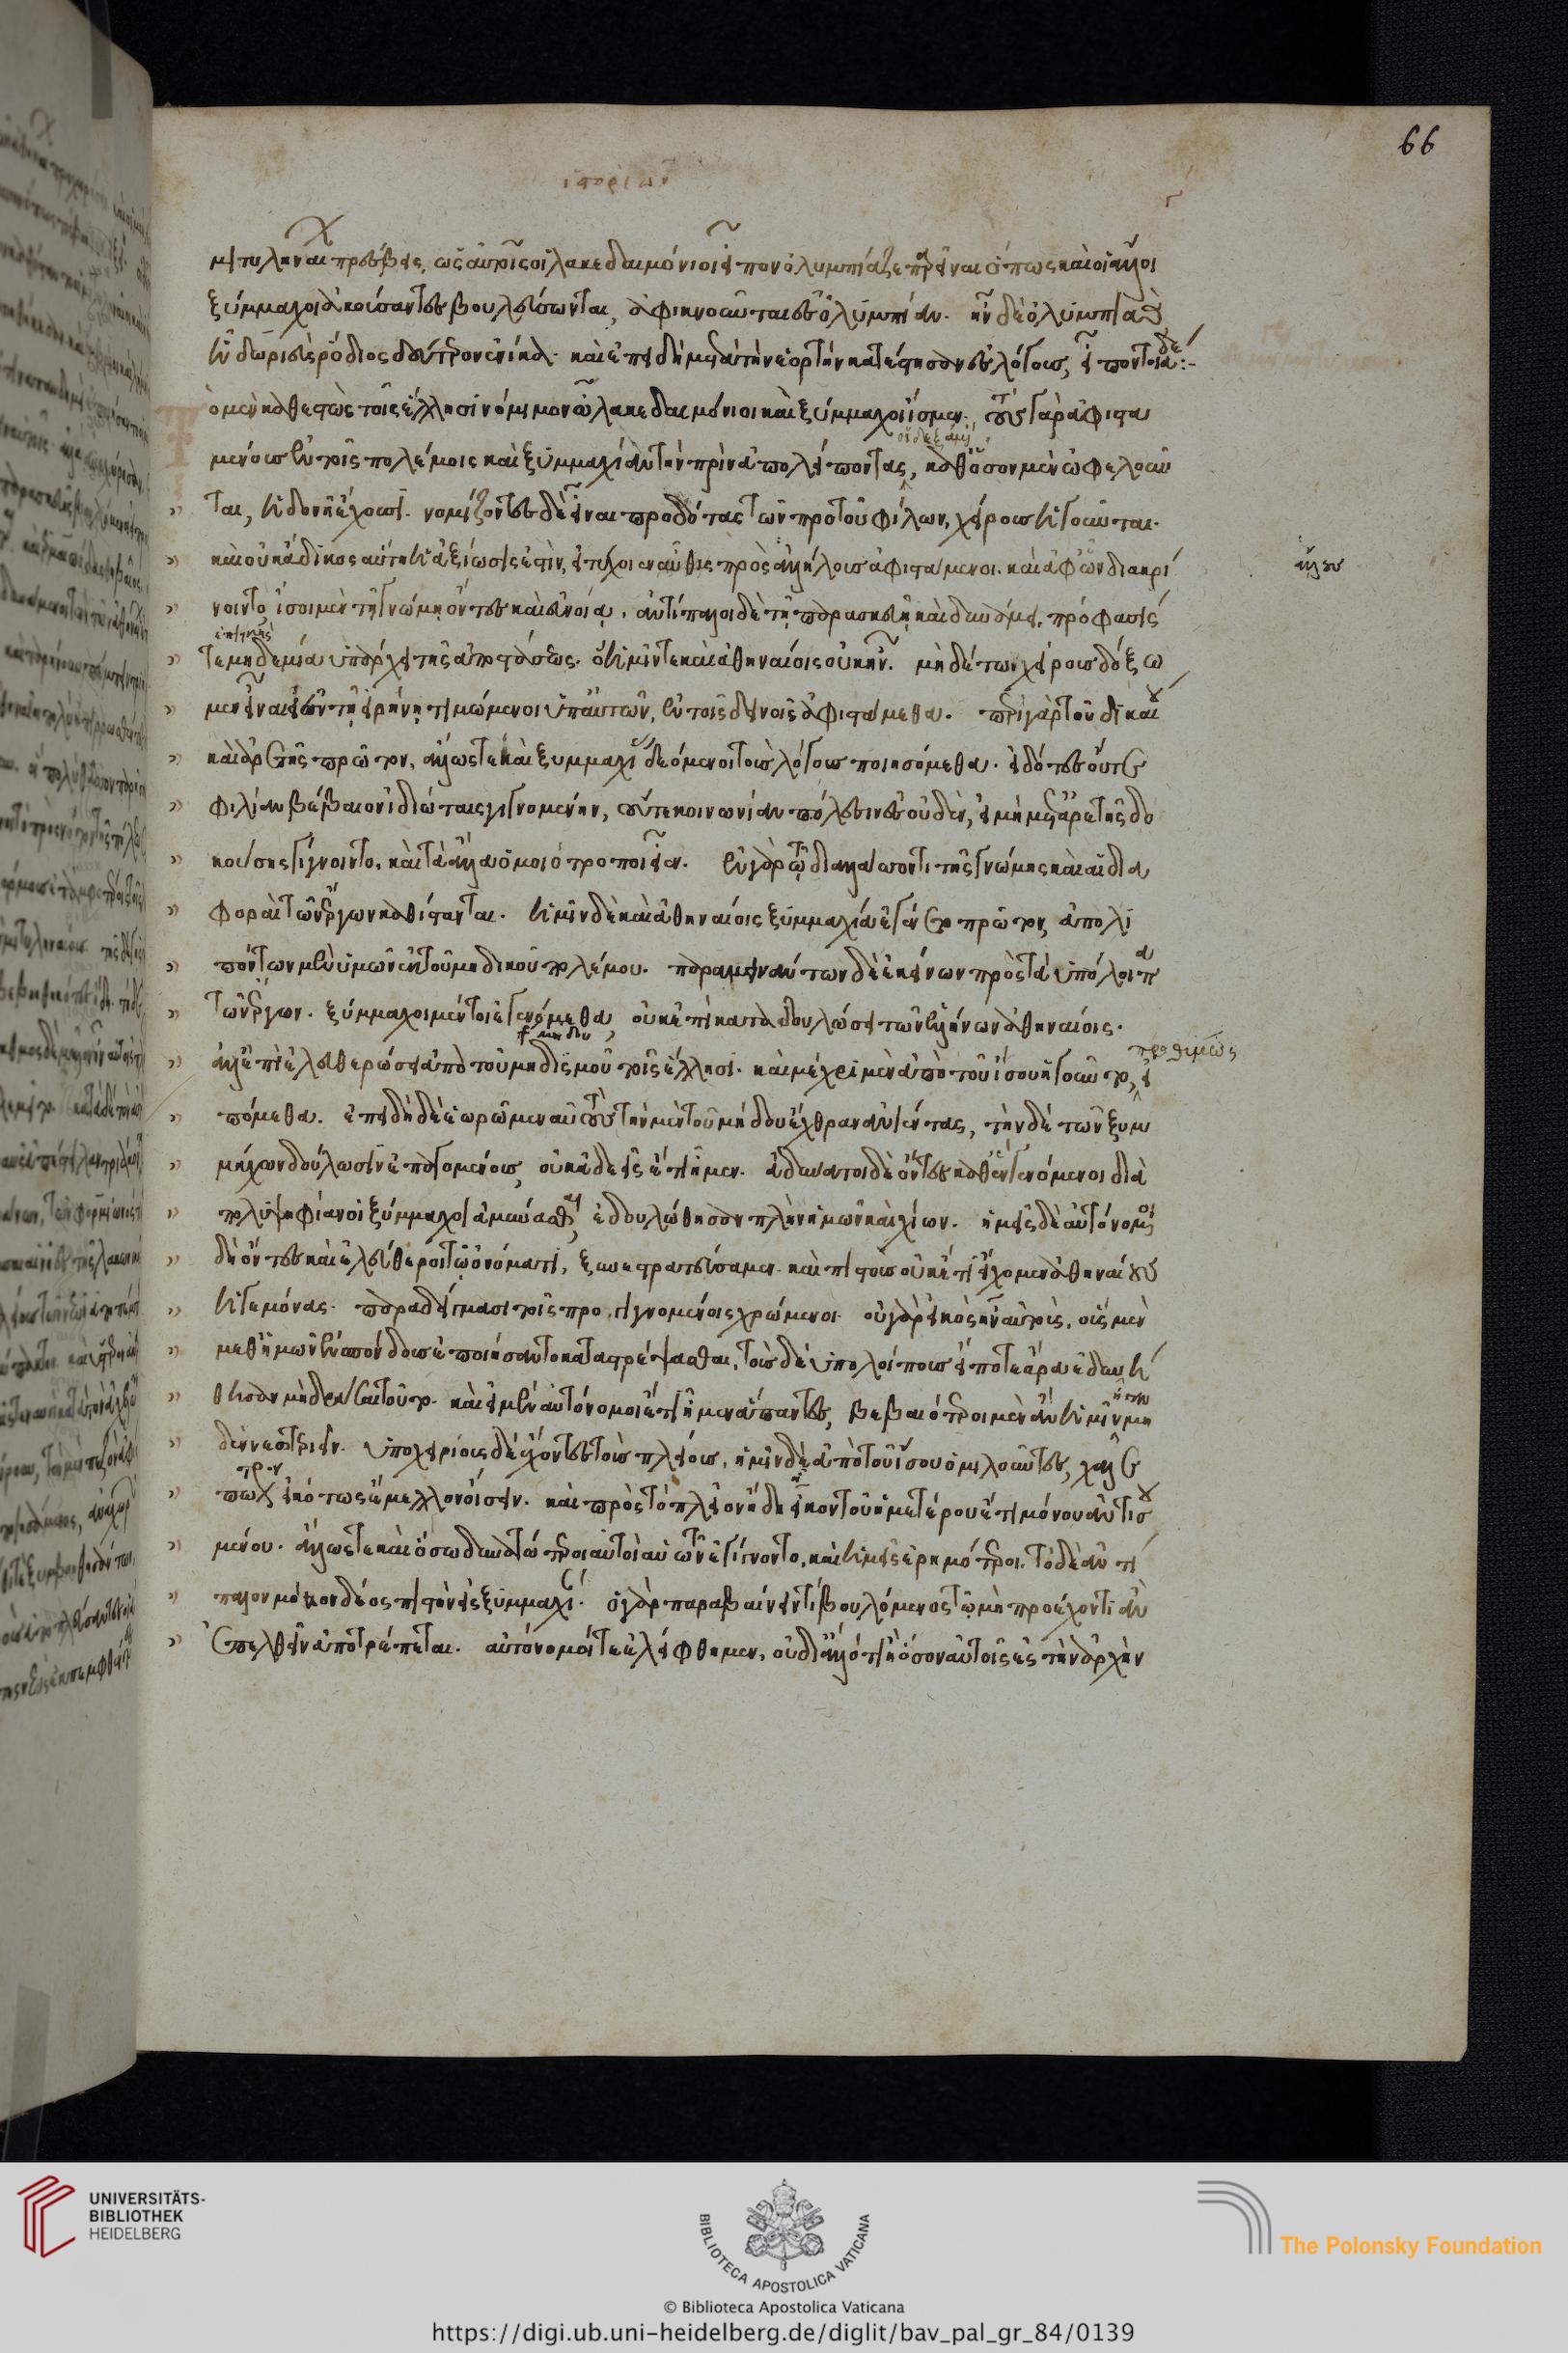 66
ἱστοριῶν
μιτυληναίων πρέσβεις, ὡς αὐτοῖς οἱ λακεδαιμόνιοι εἶπον ὀλυμπίαζε παρεῖναι ὅπως καὶ οἱ ἄλλοι
ξύμμαχοι ἀκούσαντες βουλεύσωνται, ἀφικνοῦνται ἐς ὀλυμπίαν. ἦν δὲ ὀλυμπιὰς
ᾗ δωριεὺς ῥόδιος δεύτερον ἐνίκα. καὶ ἐπειδὴ μετὰ τὴν ἑορτὴν κατέστησαν ἐς λόγους, εἶπον τοιάδε:-
ὁ μὲν καθεστὼς τοῖς ἕλλησι νόμιμον ὦ λακεδαιμόνιοι καὶ ξύμμαχοι ἴσμεν. τοὺς γὰρ ἀφιστα
μένους ἐν τοῖς πολέμοις καὶ ξυμμαχίαν τὴν πρὶν ἀπολείποντας, καθ' ὅσον μὲν ὠφελοῦν
οἱ δεξάμενοι
ται, ἡδονῇ ἔχουσι. νομίζοντες δὲ εἶναι προδότας τῶν πρὸ τοῦ φίλων, χείρους ἡγοῦνται.
καὶ οὐκ ἄδικος αὕτη ἡ ἀξίωσίς ἐστιν, εἰ τύχοιεν αὖθις πρὸς ἀλλήλους ἀφιστάμενοι. καὶ ἀφ' ὧν διακρί
νοιντο ἴσοι μὲν τῇ γνώμῃ ὄντες καὶ εὐνοίᾳ. ἀντίπαλοι δὲ τῇ παρασκευῇ καὶ δυνάμει. πρόφασίς
ἐπιεικὴς
τε μηδεμία ὑπάρχει τῆς ἀποστάσεως. ὃ ἡμῖν τε καὶ ἀθηναίοις οὐκ ἦν. μηδέ τῳ χείρους δόξω
μεν εἶναι εἰ ἐν τῇ εἰρήνῃ τιμώμενοι ὑπ' αὐτῶν, ἐν τοῖς δεινοῖς ἀφιστάμεθα. περὶ γὰρ τοῦ δικαίου
καὶ ἀρετῆς πρῶτον, ἄλλως τε καὶ ξυμμαχίας δεόμενοι τοὺς λόγους ποιησόμεθα. εἰδότες οὔτε
φιλίαν βέβαιον ἰδιώταις γιγνομένην, οὔτε κοινωνίαν πόλεσιν ἐς οὐδὲν, εἰ μὴ μετ' ἀρετῆς δο
κούσης γίγνοιντο. καὶ τὰ ἄλλα ὁμοιότροποι εἶεν. ἐν γὰρ τῷ διαλλάσσοντι τῆς γνώμης καὶ αἱ δια
φοραὶ τῶν ἔργων καθίστανται. ἡμῖν δὲ καὶ ἀθηναίοις ξυμμαχία ἐγένετο πρῶτον, ἀπολι
πόντων μὲν ὑμῶν ἐκ τοῦ μηδικοῦ πολέμου. παραμεινάντων δὲ ἐκείνων πρὸς τὰ ὑπόλοιπα
τῶν ἔργων. ξύμμαχοι μέντοι ἐγενόμεθα, οὐκ ἐπὶ καταδουλώσει τῶν ἑλλήνων ἀθηναίοις.
ἀλλ' ἐπ' ἐλευθερώσει ἀπὸ τοῦ μηδισμοῦ τοῖς ἕλλησι. καὶ μέχρι μὲν ἀπὸ τοῦ ἴσου ἡγοῦντο, εἱ
προθύμως
πόμεθα. ἐπειδὴ δὲ ἑωρῶμεν αὐτοὺς τὴν μὲν τοῦ μήδου ἔχθραν ἀνιέντας, τὴν δὲ τῶν ξυμ
μάχων δούλωσιν ἐπαγομένους, οὐκ ἀδεεῖς ἔτι ἦμεν. ἀδύνατοι δὲ ὄντες καθ' ἓν γενόμενοι διὰ
πολυψηφίαν οἱ ξύμμαχοι ἀμύνασθαι, ἐδουλώθησαν πλὴν ἡμῶν καὶ χίων. ἡμεῖς δὲ αὐτόνομοι
δὴ ὄντες καὶ ἐλεύθεροι τῷ ὀνόματι, ξυνεστρατεύσαμεν. καὶ πιστοὺς οὐκέτι εἴχομεν ἀθηναίους
ἡγεμόνας. παραδείγμασι τοῖς προγιγνομένοις χρώμενοι. οὐ γὰρ εἰκὸς ἦν αὐτοὺς, οὓς μὲν
μεθ' ἡμῶν ἐνσπόνδους ἐποιήσαντο καταστρέψασθαι, τοὺς δὲ ὑπολοίπους εἴ ποτε ἄρα ἐδυνή
θησαν μὴ δρᾶσαι τοῦτο. καὶ εἰ μὲν αὐτόνομοι ἔτι ἦμεν ἅπαντες, βεβαιότεροι μὲν ἂν ἡμῖν ἦσαν μη
δὲν νεωτεριεῖν. ὑποχειρίους δὲ ἔχοντες τοὺς πλείους, ἡμῖν δὲ ἀπὸ τοῦ ἴσου ὁμιλοῦντες, χαλε
πώτερον εἰκότως ἔμελλον οἴσειν. καὶ πρὸς τὸ πλεῖον ἤδη εἶκον τοῦ ἡμετέρου ἔτι μόνου ἀντισου
μένου. ἄλλως τε καὶ ὅσῳ δυνατώτεροι αὐτοὶ αὑτῶν ἐγίγνοντο. καὶ ἡμεῖς ἐρημότεροι. τὸ δὲ ἀντί
παλον μόνον δέος πιστὸν ἐς ξυμμαχίαν. ὁ γὰρ παραβαίνειν τι βουλόμενος τῷ μὴ προέχοντι ἂν
ἐπελθεῖν ἀποτρέπεται. αὐτόνομοί τε ἐλείφθημεν, οὐ δι' ἄλλό τι ἢ ὅσον αὐτοῖς ἐς τὴν ἀρχὴν
UNIVERSITÄTS-
BIBLIOTHEK
HEIDELBERG
BIBLIOTECA APOSTOLICA VATICANA
The Polonsky Foundation
© Biblioteca Apostolica Vaticana
https://digi.ub.uni-heidelberg.de/diglit/bav_pal_gr_84/0139